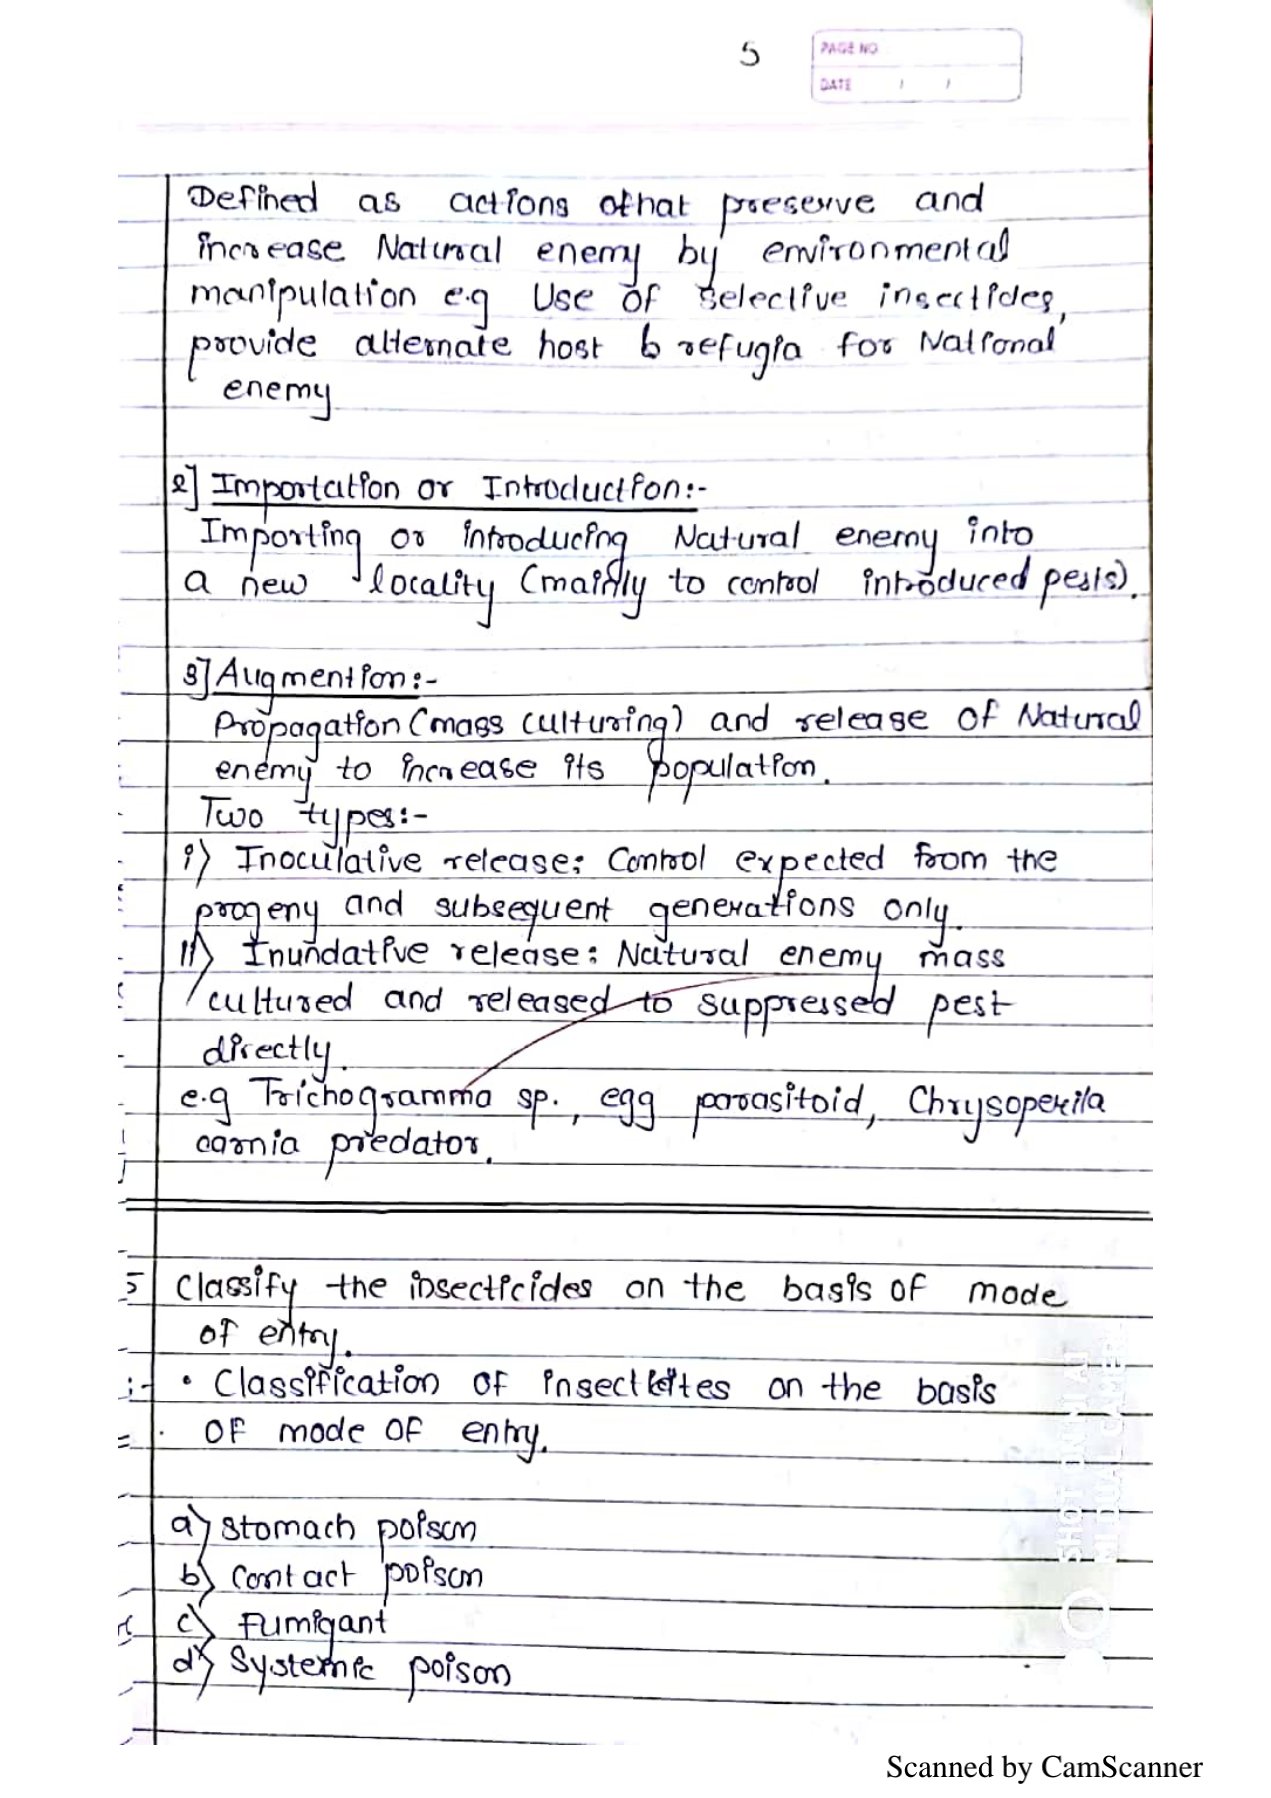 5
PAGE NO
DATE / /
Defined as actions othat preserve and
increase Natural enemy by environmental
manipulation e.g Use of selective insectides,
provide alternate host & refugia for National
enemy
2] Importation or Introduction:-
Importing or introducing Natural enemy into
a new locality (mainly to control introduced pests).
3] Augmention:-
Propagation (mass culturing) and release of Natural
enemy to increase its population.
Two types:-
i) Inoculative release: Control expected from the
progeny and subsequent generations only.
ii) Inundative release: Natural enemy mass
cultured and released to suppressed pest
directly.
e.g Trichogramma sp., egg parasitoid, Chrysoperila
carnia predator.
5 Classify the insecticides on the basis of mode
of entry.
:- • Classification of insectites on the basis
OF mode OF entry.
a) Stomach poison
b) Contact poison
c) Fumigant
d) Systemic poison
SHOT ON MI A1
MI DUAL CAMERA
Scanned by CamScanner